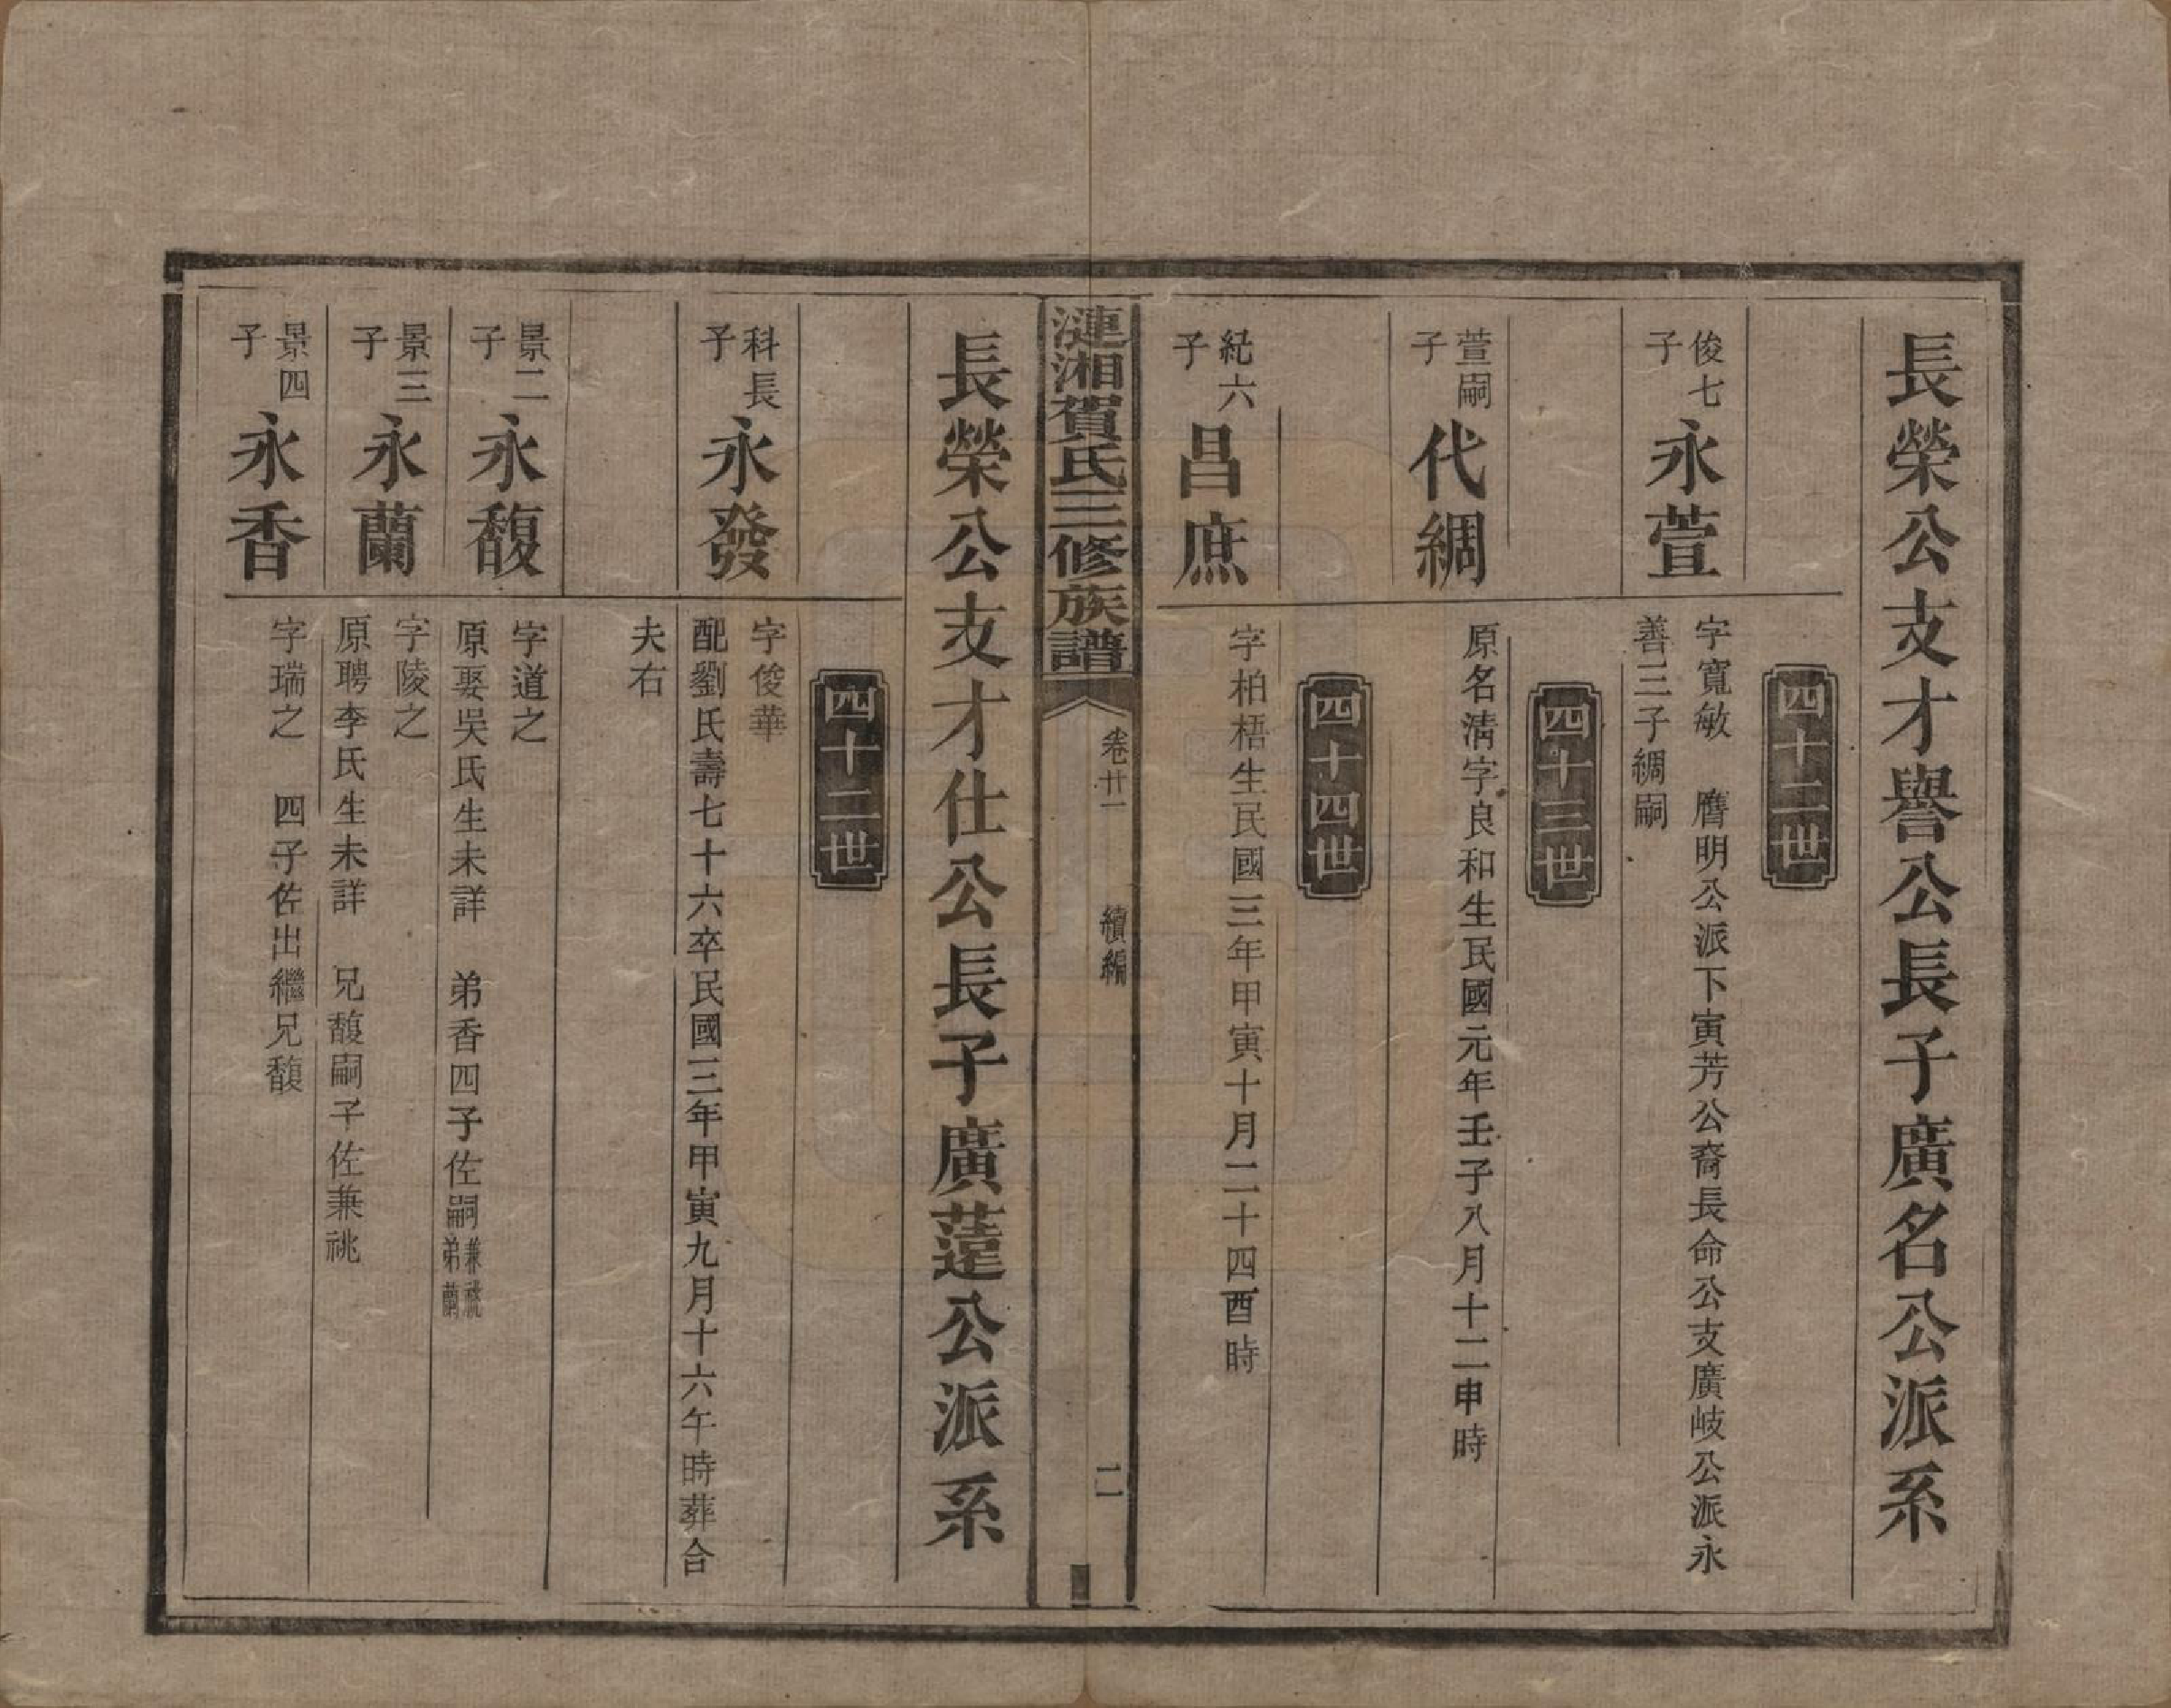 長榮公支才譽公長子廣名公派系
四十二世
俊七子
永萱
字寬敏　膺明公派下寅芳公裔長命公支廣岐公派永
善三子綢嗣
四十三世
萱嗣子
代綢
原名清字良和生民國元年壬子八月十二申時
四十四世
紀六子
昌庶
字柏梧生民國三年甲寅十月二十四酉時
漣湘賀氏三修族譜
卷廿一
續編
二
長榮公支才仕公長子廣蓮公派系
四十二世
科長子
永發
字俊華
配劉氏壽七十六卒民國三年甲寅九月十六午時葬合
夫右
景二子
永馥
字道之
原娶吳氏生未詳　弟香四子佐嗣兼祧弟蘭
景三子
永蘭
字陵之
原聘李氏生未詳　兄馥嗣子佐兼祧
景四子
永香
字瑞之　四子佐出繼兄馥